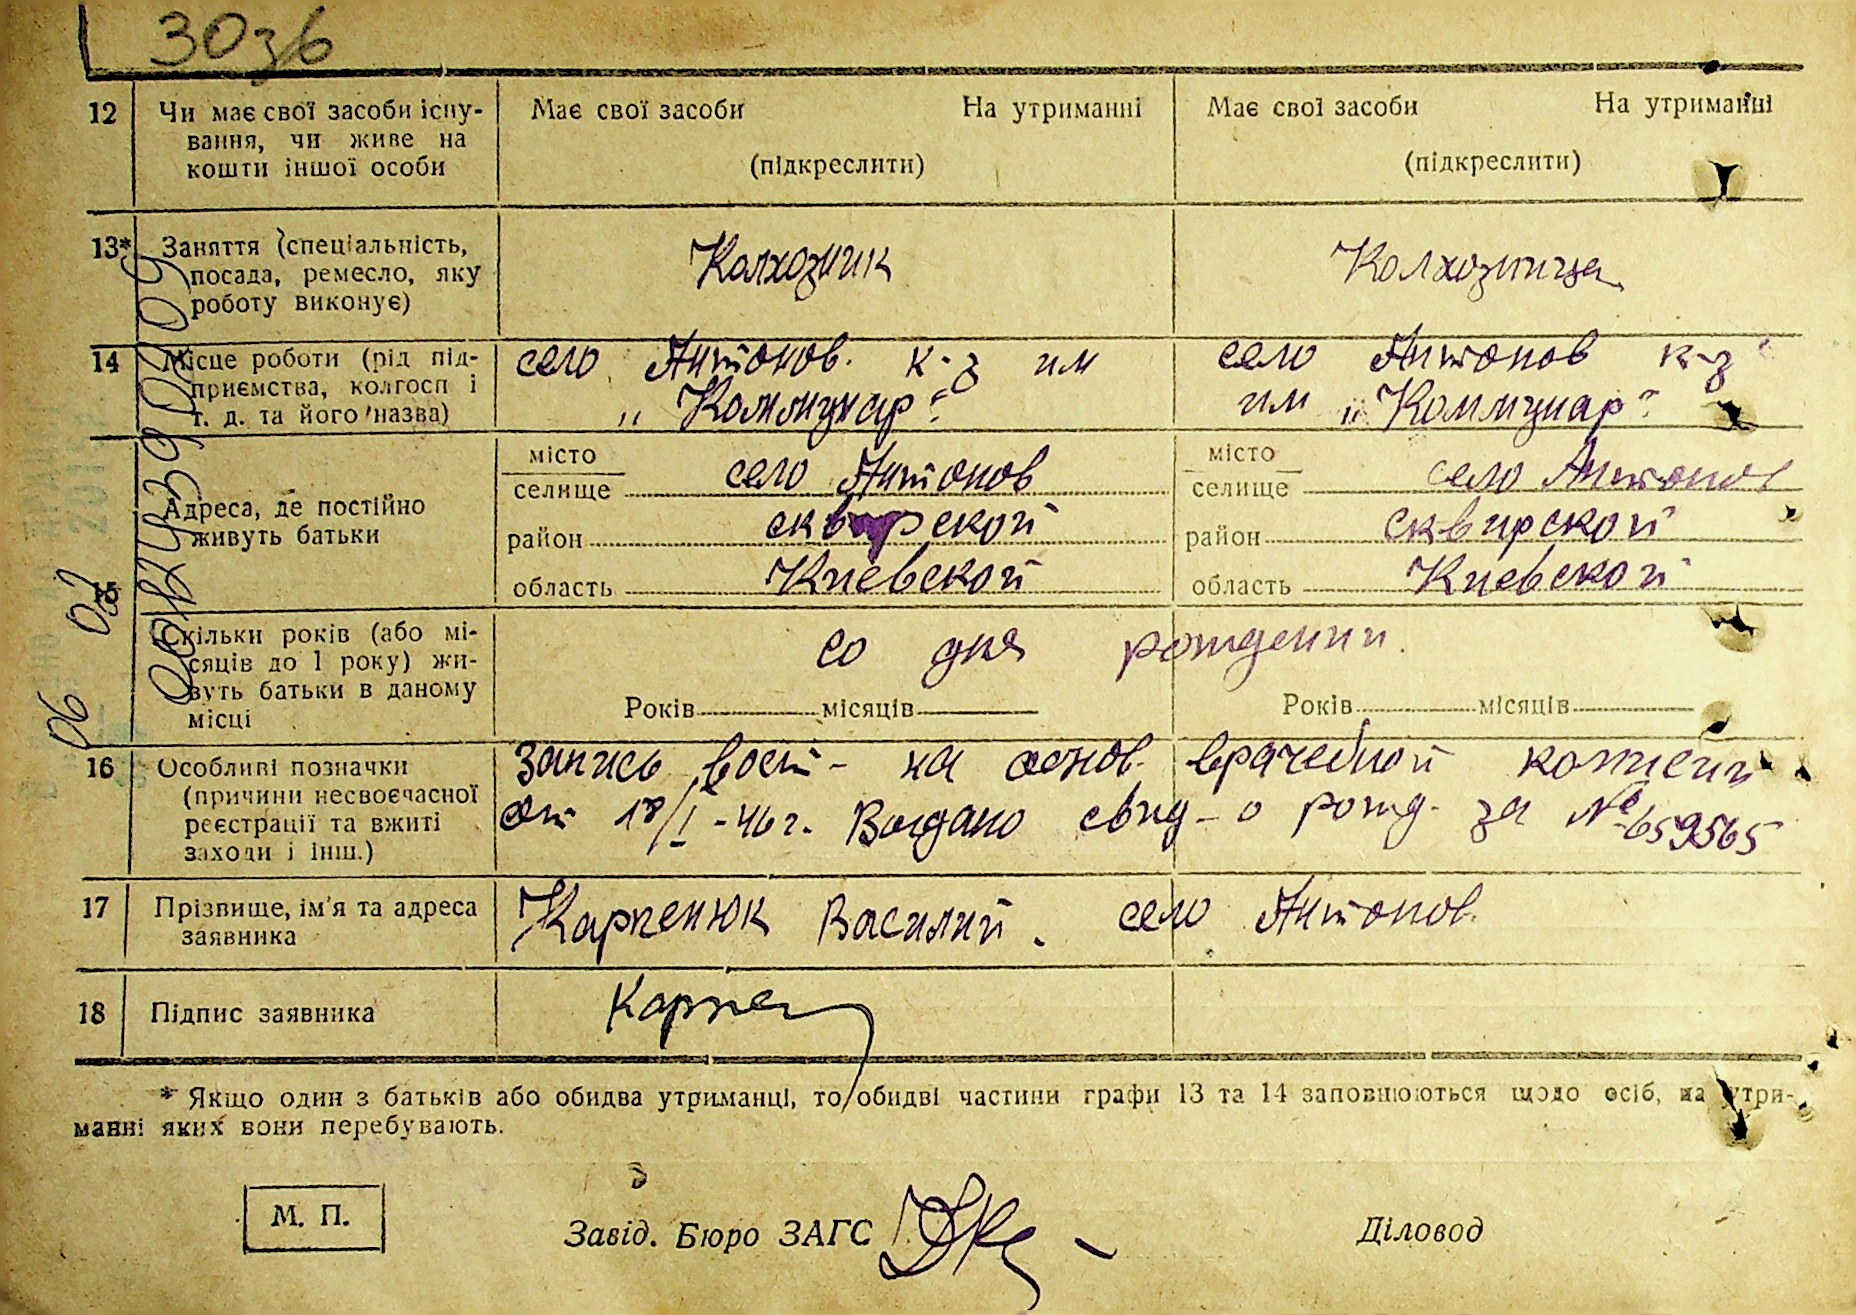 30зв
12 Чи має свої засоби існу- Має свої засоби На утриманні Має свої засоби На утриманні
вання, чи живе на
кошти іншої особи (підкреслити) (підкреслити)
13* Заняття (спеціальність,
посада, ремесло, яку Колхозник Колхозница
роботу виконує)
14 Місце роботи (рід під- село Антонов. к-з им село Антонов к-з
приємства, колгосп і „Коммунар" им „Коммунар"
т. д. та його назва)
місто село Антонов місто село Антонов
селище селище
Адреса, де постійно район сквирской район сквирской
живуть батьки
15 область Киевской область Киевской
Скільки років (або мі- со дня рождении.
сяців до 1 року) жи-
вуть батьки в даному Років місяців Років місяців
місці
16 Особливі позначки Запись вост- на основ. врачебной комисии
(причини несвоєчасної от 18/I-46г. Вогдано свид-о рожд. за № 659565
реєстрації та вжиті
заходи і інш.)
17 Прізвище, ім'я та адреса Карпенюк Василий. село Антонов.
заявника
18 Підпис заявника Карпе
* Якщо один з батьків або обидва утриманці, то обидві частини графи 13 та 14 заповнюються щодо осіб, на утри-
манні яких вони перебувають.
М. П. Завід. Бюро ЗАГС Діловод